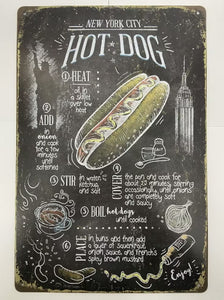 NEW YORK CITY
HOT DOG
1 HEAT
oil in
a skillet
over low
heat
2
ADD
in
onion
and cook
for a few
minutes
until
softened
3 STIR
in water,
ketchup,
and salt
4
COVER
the pan and cook for
about 20 minutes, stirring
occasionally, until onions
are completely soft
and saucy
5 BOIL hot dogs
until cooked
6
PLACE
in buns and then add
a layer of sauerkraut,
onion sauce, and french's
spicy brown mustard
Enjoy!